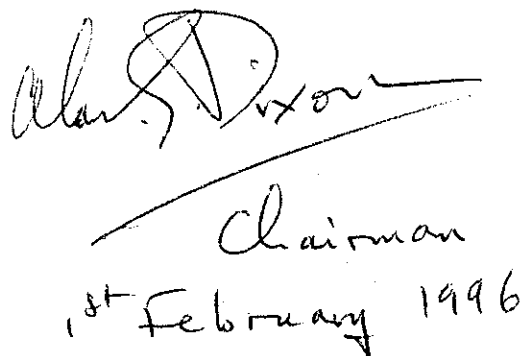 Alan G. Dixon
Chairman
1st February 1996